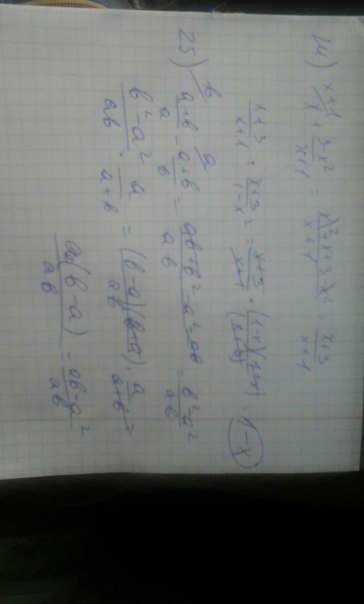 14) x/1 + (3-x²)/(x+1) = (x²+x+3-x²)/(x+1) = (x+3)/(x+1)
(x+3)/(x+1) : (x+3)/(1-x²) = (x+3)/(x+1) · (1-x)(1+x)/(x+3) = 1-x
25) (a+b)/a - (a+b)/b = (ab+b²-a²-ab)/ab = (b²-a²)/ab
(b²-a²)/ab · a/(a+b) = (b-a)(b+a)/ab · a/(a+b) =
a(b-a)/ab = (ab-a²)/ab